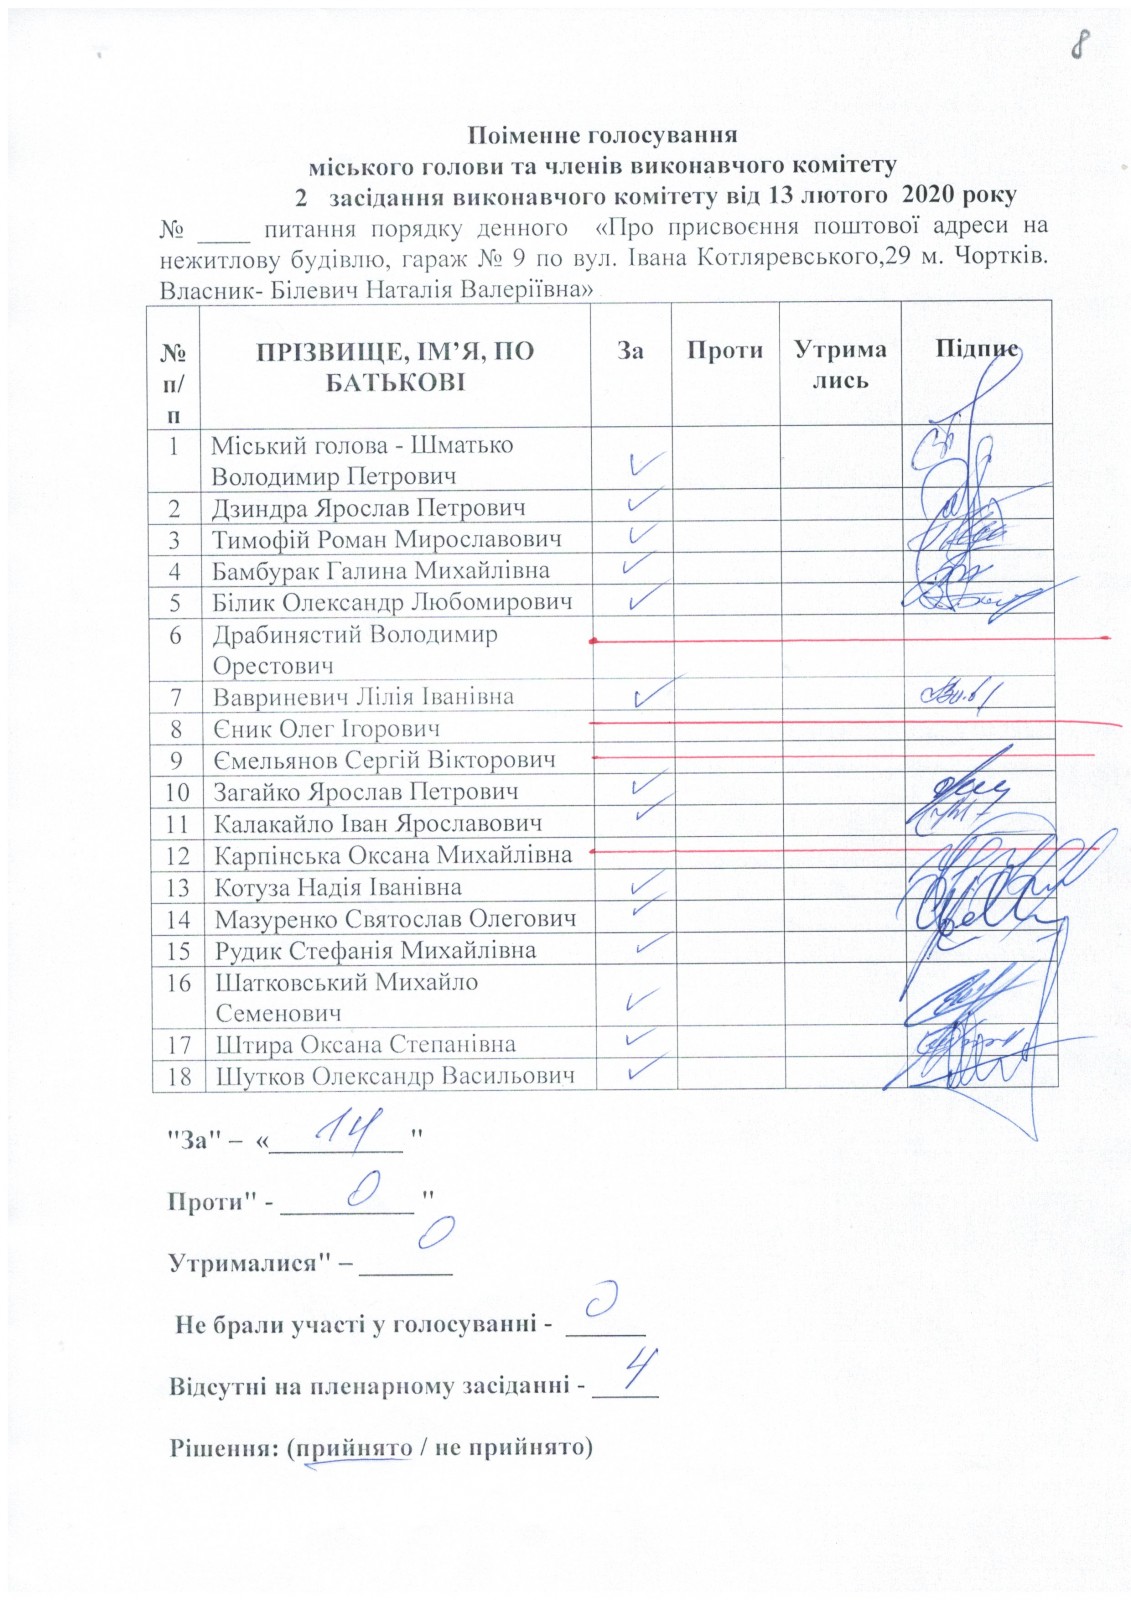 8
Поіменне голосування
міського голови та членів виконавчого комітету
2 засідання виконавчого комітету від 13 лютого 2020 року
№ ____ питання порядку денного «Про присвоєння поштової адреси на
нежитлову будівлю, гараж № 9 по вул. Івана Котляревського,29 м. Чортків.
Власник- Білевич Наталія Валеріївна»
№ п/п ПРІЗВИЩЕ, ІМ’Я, ПО БАТЬКОВІ За Проти Утрима лись Підпис
1 Міський голова - Шматько
Володимир Петрович ✓
2 Дзиндра Ярослав Петрович ✓
3 Тимофій Роман Мирославович ✓
4 Бамбурак Галина Михайлівна ✓
5 Білик Олександр Любомирович ✓
6 Драбинястий Володимир
Орестович
7 Вавриневич Лілія Іванівна ✓
8 Єник Олег Ігорович
9 Ємельянов Сергій Вікторович
10 Загайко Ярослав Петрович ✓
11 Калакайло Іван Ярославович ✓
12 Карпінська Оксана Михайлівна
13 Котуза Надія Іванівна ✓
14 Мазуренко Святослав Олегович ✓
15 Рудик Стефанія Михайлівна ✓
16 Шатковський Михайло
Семенович ✓
17 Штира Оксана Степанівна ✓
18 Шутков Олександр Васильович ✓
"За" – «14 "
Проти" - 0 "
Утрималися" – 0
Не брали участі у голосуванні - 0
Відсутні на пленарному засіданні - 4
Рішення: (прийнято / не прийнято)